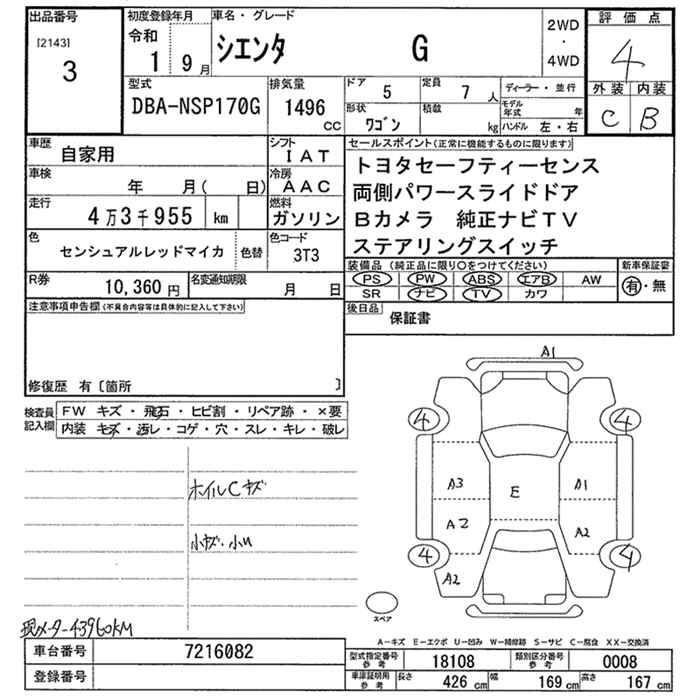 出品番号
[2143]
3
初度登録年月
令和
1 9月
車名・グレード
シエンタ G
2WD
・
4WD
評価点
4
外装 内装
C B
型式
DBA-NSP170G
排気量
1496
CC
ドア
5
定員
7人
形状
ワゴン
積載
kg
ディーラー・並行
モデル年式 年
ハンドル 左・右
車歴
自家用
シフト
IAT
車検
年 月( 日)
冷房
AAC
走行
4万3千955 km
燃料
ガソリン
色
センシュアルレッドマイカ
色替
色コード
3T3
R券
10,360 円
名変通知期限
月 日
セールスポイント(正常に機能するものに限ります)
トヨタセーフティーセンス
両側パワースライドドア
Bカメラ 純正ナビTV
ステアリングスイッチ
装備品(純正品に限り○をつけてください)
PS PW ABS エアB AW
SR ナビ TV カワ
新車保証書
有・無
後日品
保証書
注意事項申告欄(不具合内容等は具体的に記入して下さい)
修復歴 有〔箇所 〕
検査員記入欄
FW キズ・飛石・ヒビ割・リペア跡・×要
内装 キズ・汚レ・コゲ・穴・スレ・キレ・破レ
ホイルCキズ
小キズ・小U
現メーター43960KM
A1
4 4
A3 A1
E
A2 A2
4 4
A2
スペア
A―キズ E―エクボ U―凹み W―補修跡 S―サビ C―腐食 XX―交換済
車台番号
7216082
登録番号
型式指定番号
参考
18108
類別区分番号
参考
0008
車庫証明用
参考
長さ 426 cm
幅 169 cm
高さ 167 cm